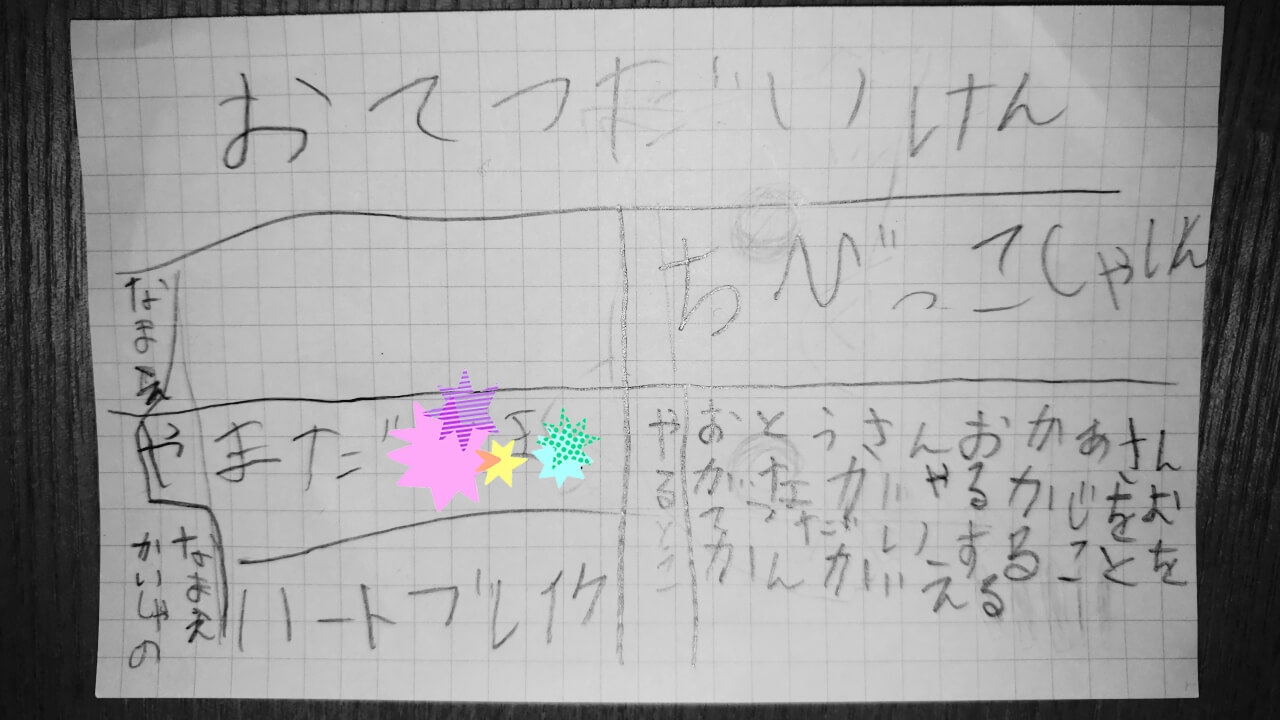 おてつだいけん
ちびっこしゃしん
なまえ
まただ
かいしゃの
なまえ
ハートブレイク
やること
おとうさんおかあさん
がたがやるかじをお
てつだいすることを
かんがいえる